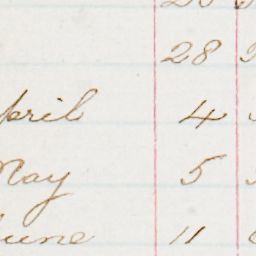 28
April 4
May 5
June 11